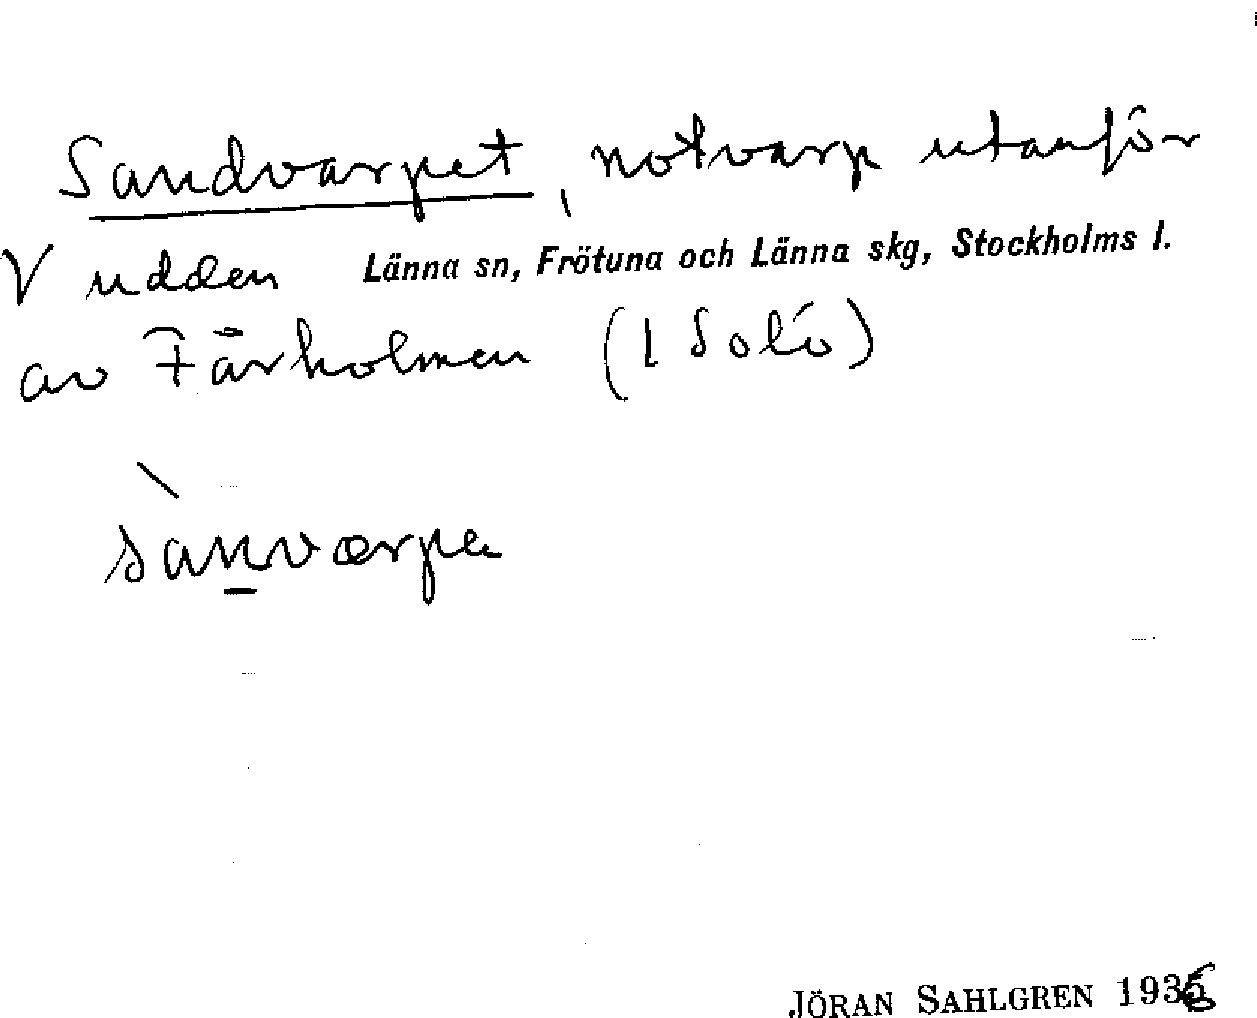 Sandvarpet, notvarp utanför
V udden Länna sn, Frötuna och Länna skg, Stockholms l.
av Fårholmen (1 Solö)
sànværpe
JÖRAN SAHLGREN 1936